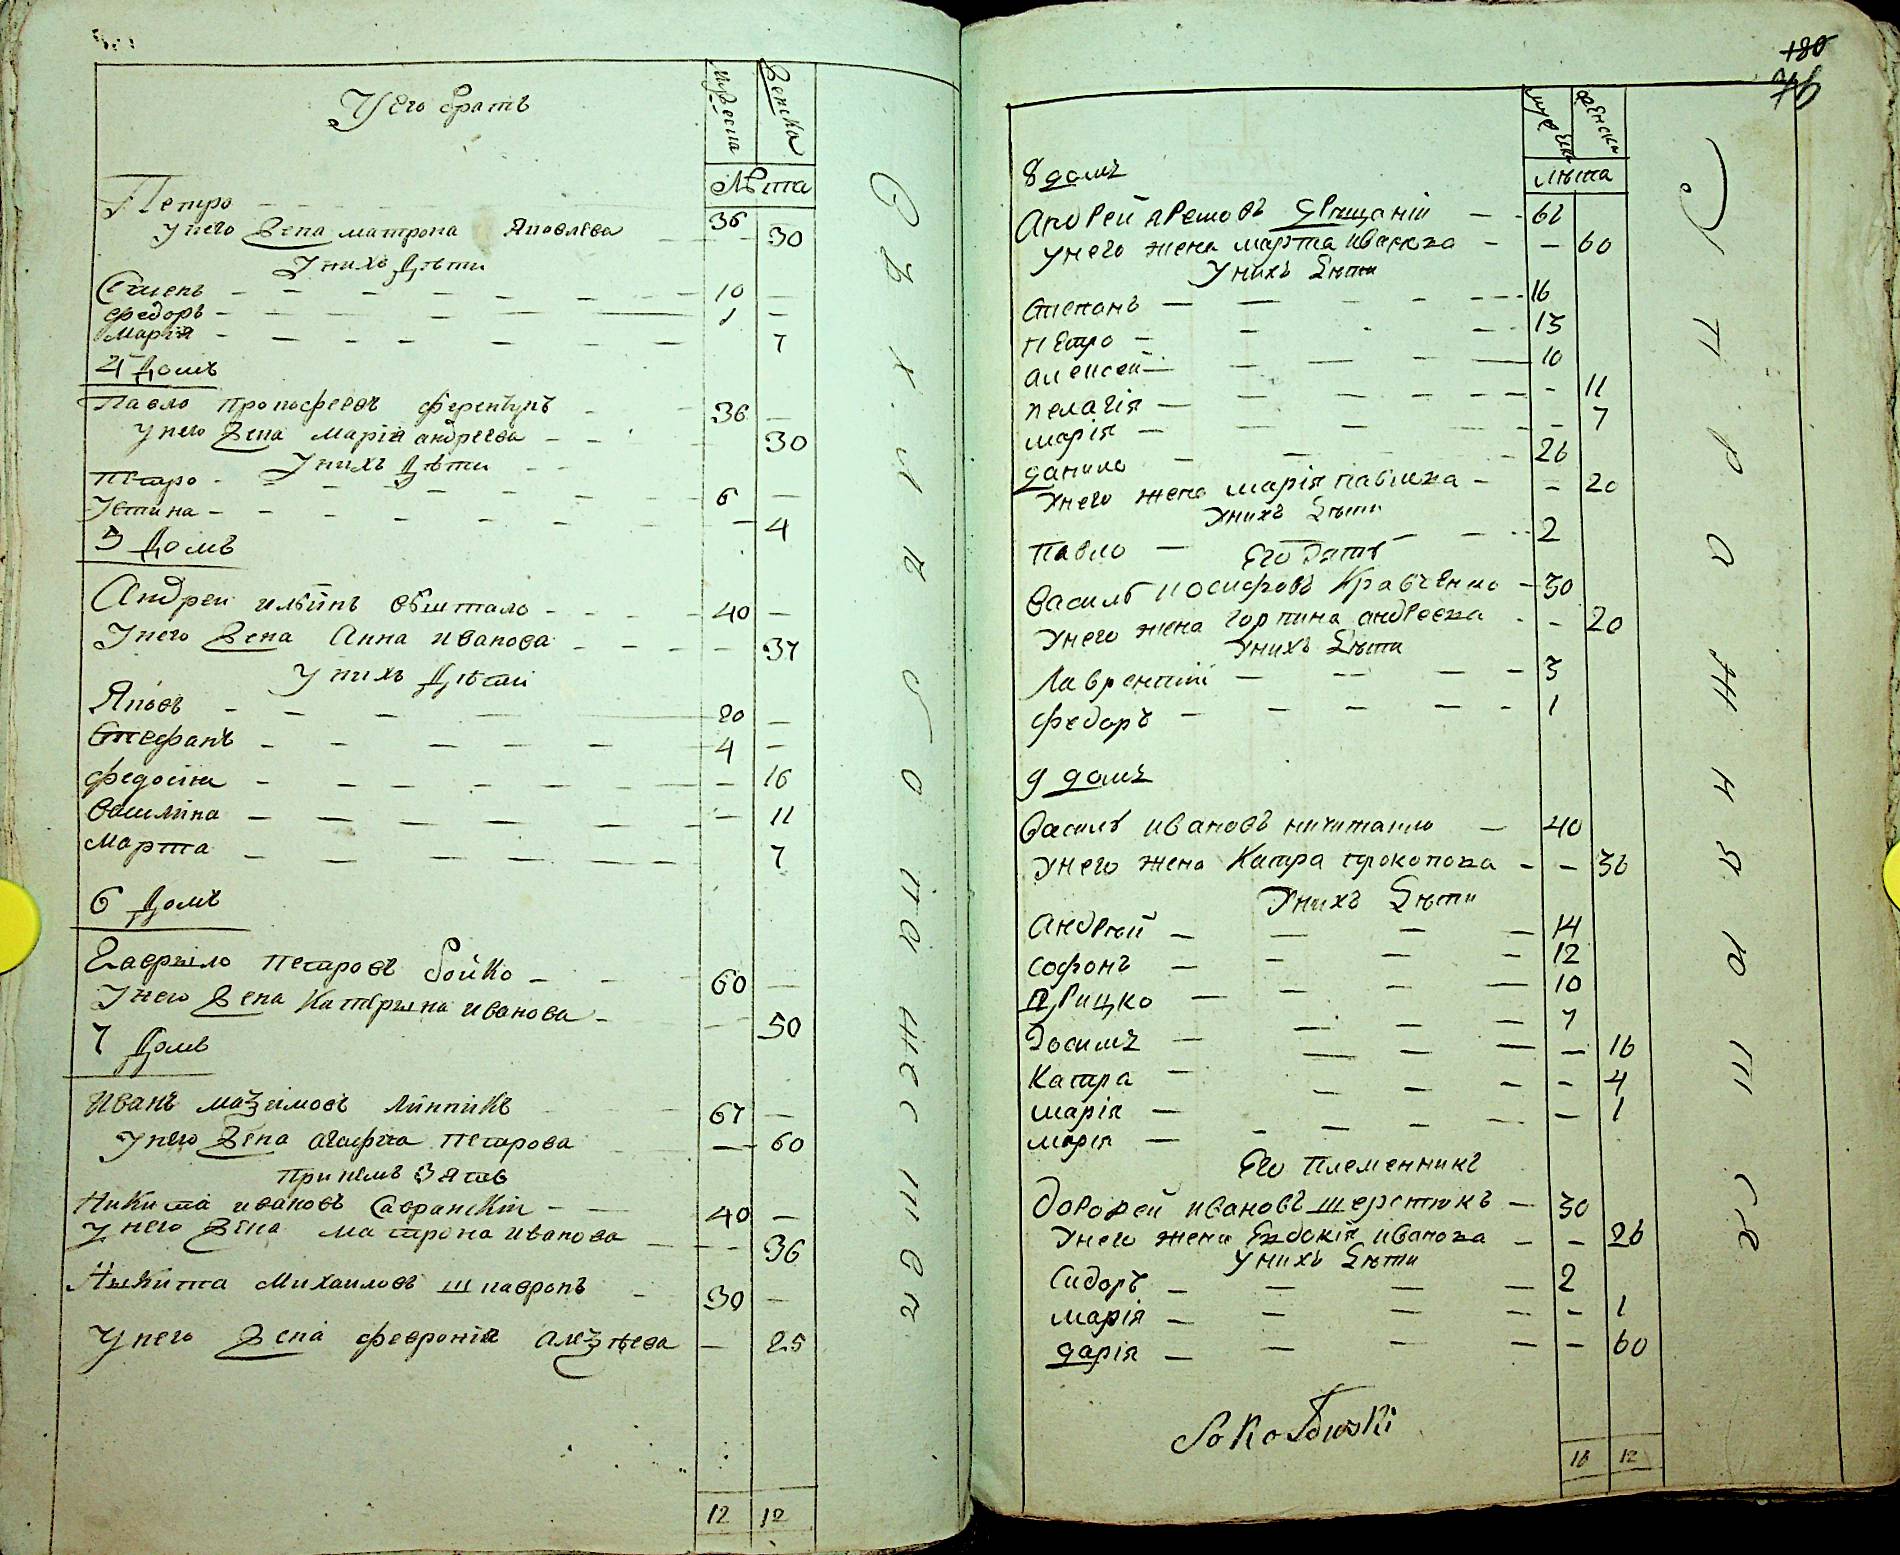 У его братъ
мужеска
женска
Лѣта
Петро — 36
у него жена матрона Яковлева — 30
У нихъ Дѣти
Семенъ — 10
федоръ — 1
Марія — 7
4 Домъ
Павло Прокофіевъ — 36
у него жена Марія андреева — 30
У нихъ Дѣти
петро — 6
Устина — 4
5 Домъ
Андреи ильинъ — 40
У него жена Анна иванова — 37
У нихъ Дѣти
Яковъ — 20
Стефанъ — 4
федосия — 16
василина — 11
Марта — 7
6 Домъ
Гаврыло петровъ бойко — 60
У него жена Катерына иванова — 50
7 Домъ
Иванъ мазимовъ Линникъ — 67
У него жена агафиа петрова — 60
Приньмъ Зять
Никита ивановъ Савранскій — 40
У него жена матрона иванова — 36
Никита Михаиловъ — 30
У него жена феврониа — 25
12 12
180
76
женска
лѣта
8 домъ
андрей — 62
унего жена марта — 60
Унихъ Дѣти
степанъ — 16
петро — 13
алексей — 10
пелагія — 11
марія — 7
данило — 26
Унего жена марія павлова — 20
Унихъ Дѣти
павло — 2
Его зять
василь иосифовъ Кравченко — 30
Унего жена горпина андреева — 20
Унихъ Дѣти
Лаврентій — 3
федоръ — 1
9 домъ
василь ивановъ — 40
унего жена Катра прокопова — 36
Унихъ Дѣти
андрей — 14
софонъ — 12
грицко — 10
Зосимъ — 7
Катра — 16
марія — 4
марія — 1
Его племенникъ
дорофей ивановъ шерстюкъ — 30
Унего жена Евдокія иванова — 26
Унихъ Дѣти
Сидоръ — 2
марія — 1
дарія — 60
Sokołowski
16 12